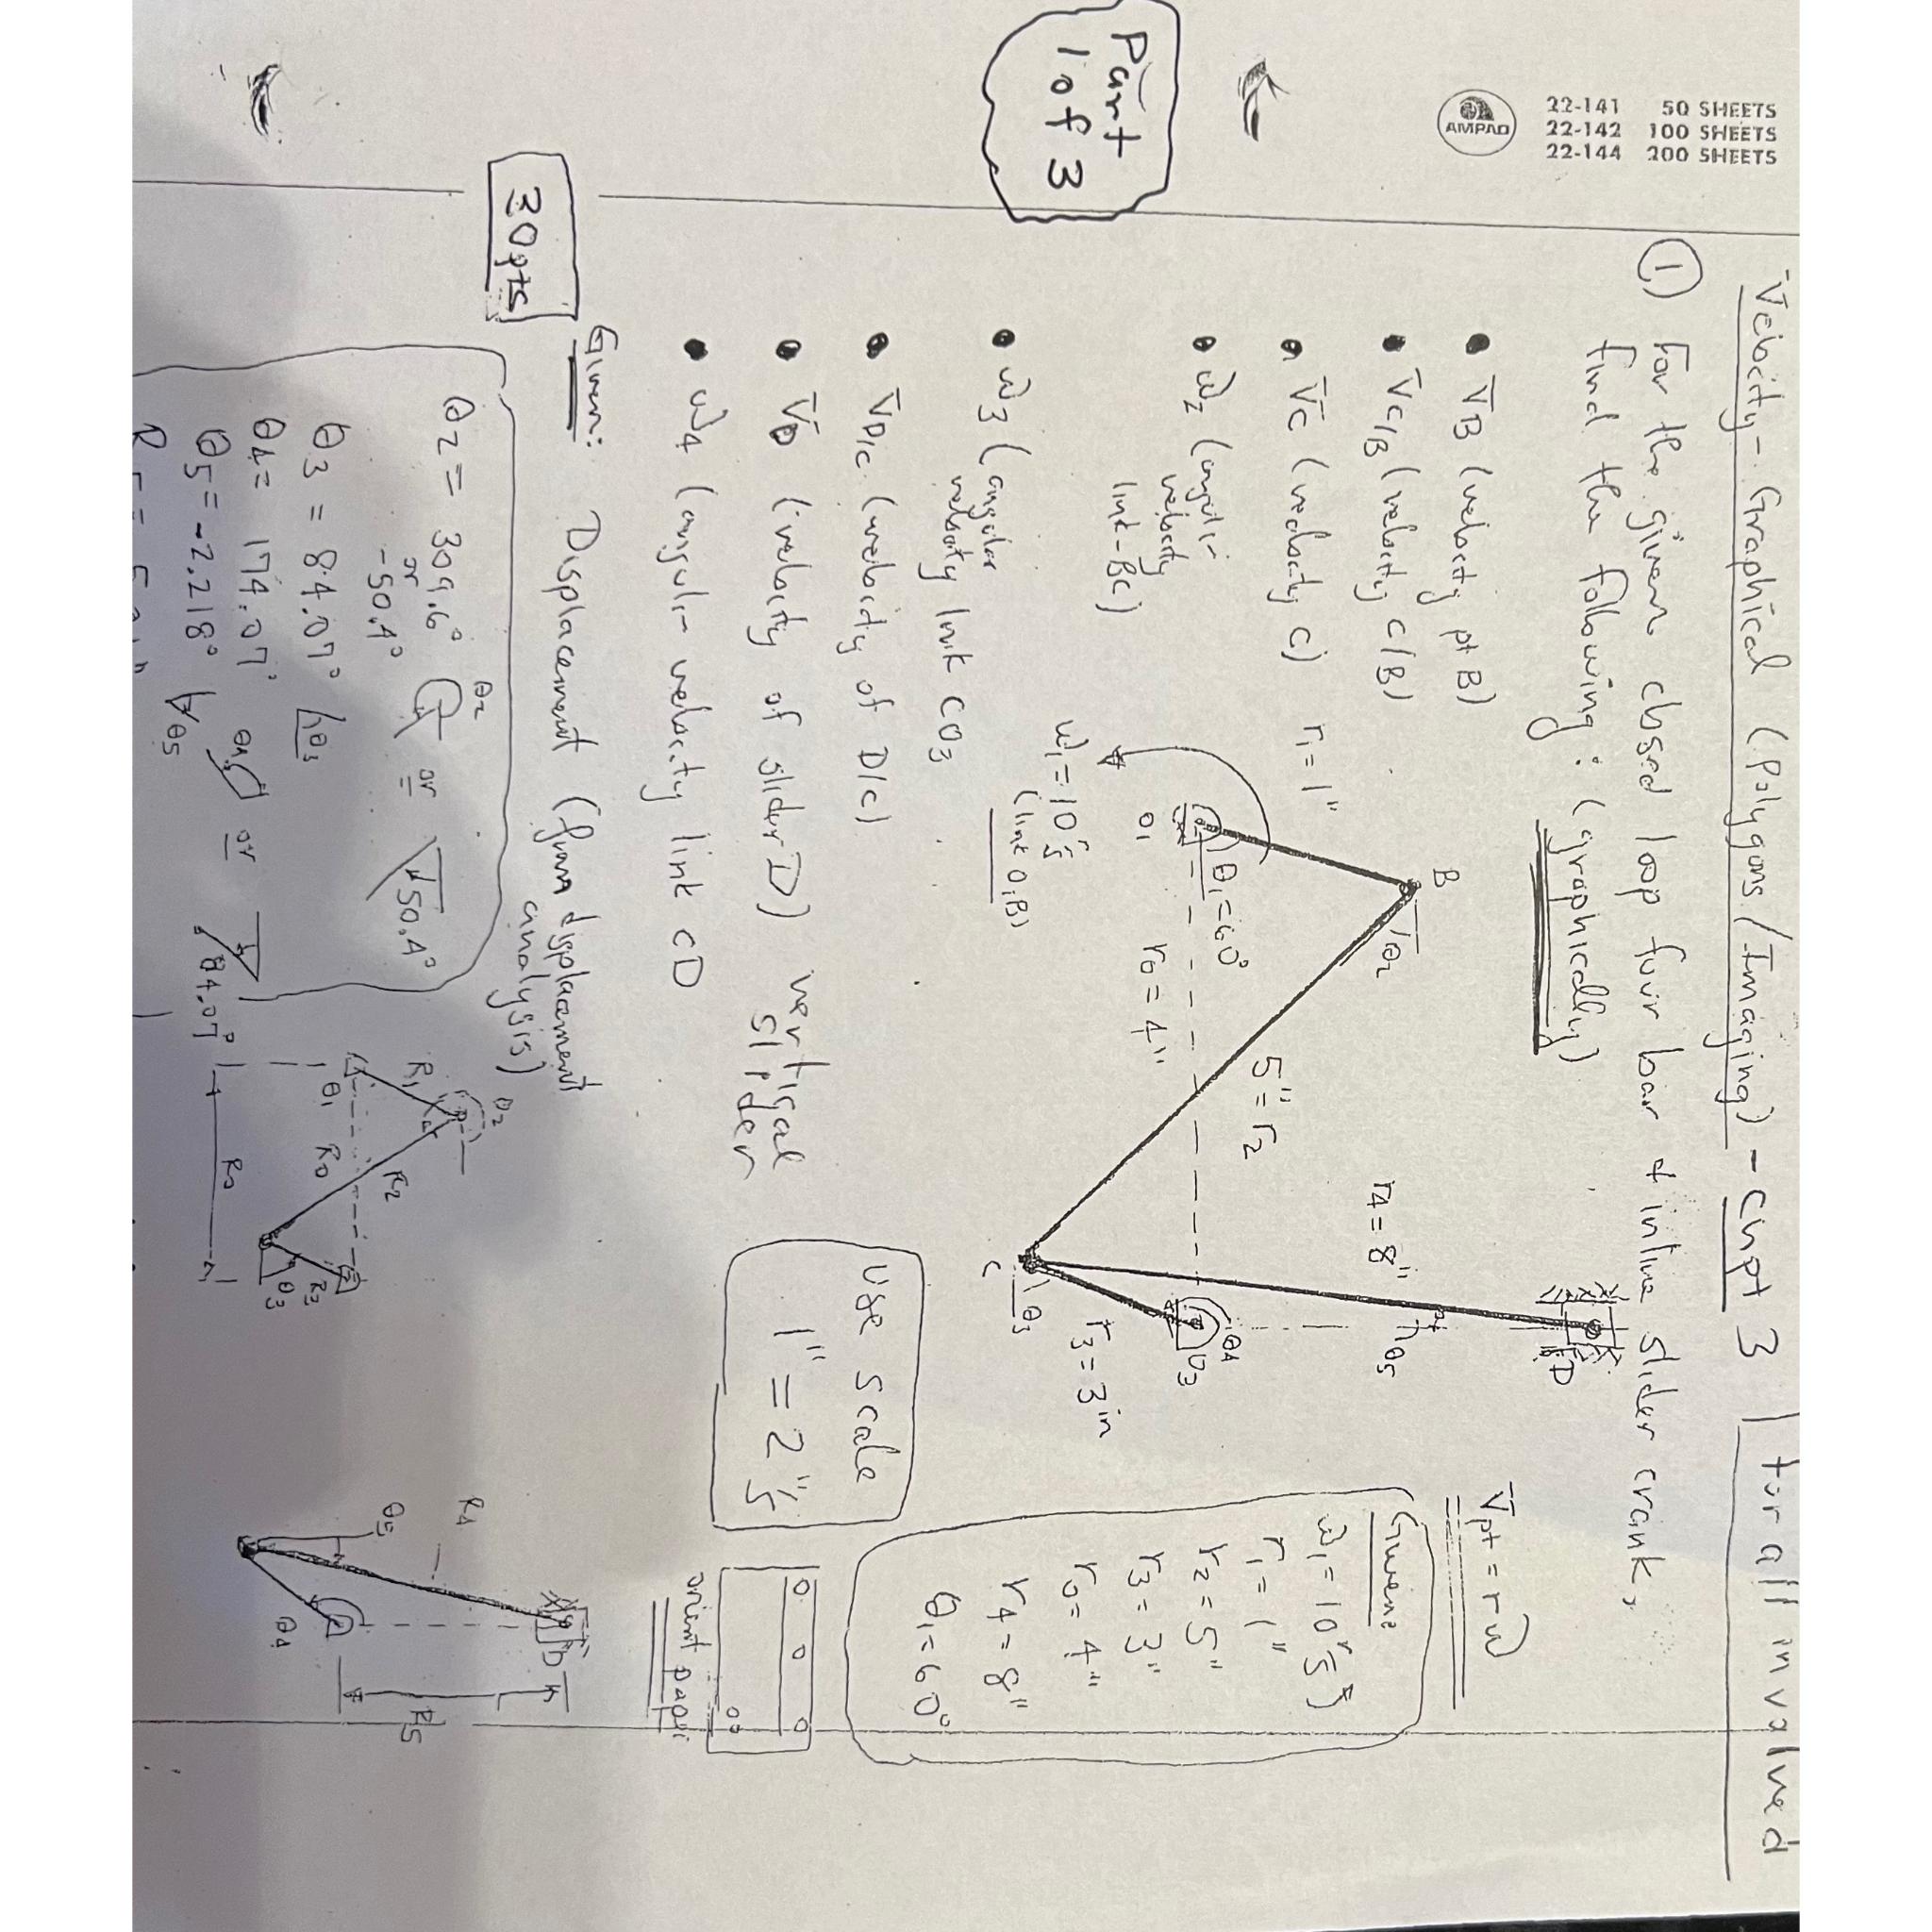 22-141 50 SHEETS
22-142 100 SHEETS
22-144 200 SHEETS
AMPAD
Velocity - Graphical (Polygons/Imaging) - Chpt 3
for all involved
① For the given closed loop four bar & inline slider crank,
find the following: (graphically)
Part
1 of 3
• V̄B (velocity pt B)
• V̄C/B (velocity C/B)
• V̄C (velocity C)
• ω2 (angular
velocity
link-BC)
• ω3 (angular
velocity link CO3
• V̄D/C (velocity of D/C)
• V̄D (velocity of slider D) vertical
slider
• ω4 (angular velocity link CD
r1 = 1"
B
θ2
θ1 = 60°
O1
ω1 = 10 r/s
(link O1B)
r0 = 4"
5" = r2
r4 = 8"
D
θ5
θ4
O3
r3 = 3 in
C
θ3
V̄pt = rω
Givens
ω1 = 10 r/s
r1 = 1"
r2 = 5"
r3 = 3"
r0 = 4"
r4 = 8"
θ1 = 60°
Use Scale
1" = 2"/s
orient paper
30pts
Given: Displacement (from displacement
analysis)
θ2 = 309.6° θ2 or 50.4°
or
-50.4°
θ3 = 84.07° θ3
θ4 = 174.07° θ4 or 84.07°
θ5 = -2.218° θ5
R1
θ2
R2
θ1
R0
R3
θ3
R0
R4
θ5
θ4
D
R5